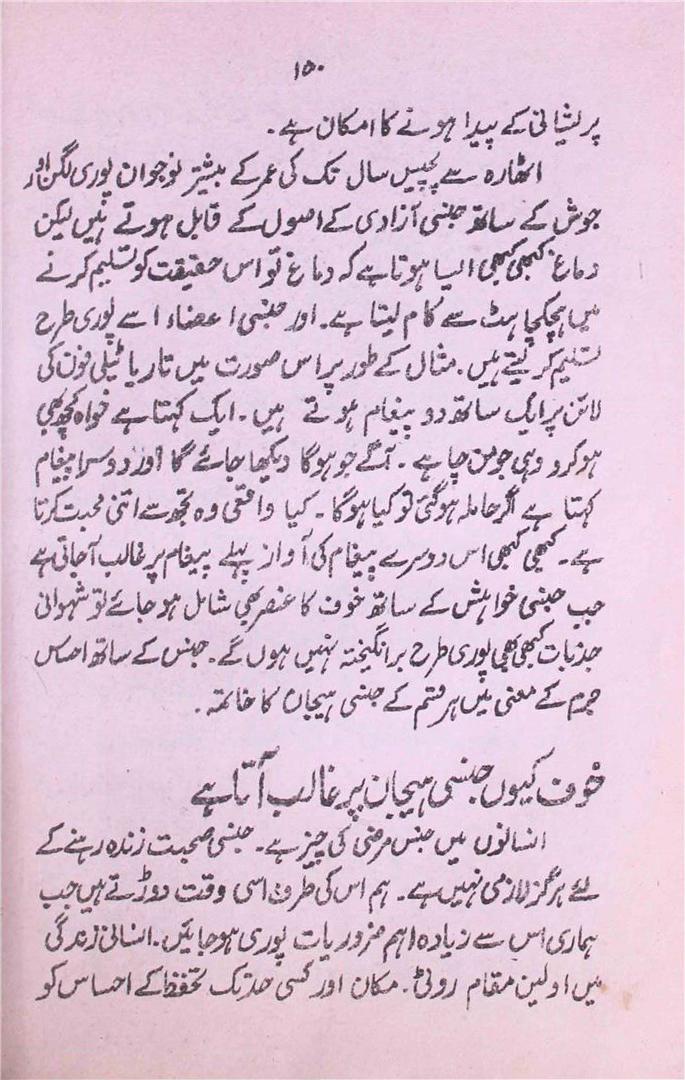 ۱۵۰
پریشانی کے پیدا ہونے کا امکان ہے۔
اٹھارہ سے پچیس سال تک کی عمر کے بیشتر نوجوان پوری لگن اور
جوش کے ساتھ جنسی آزادی کے اصول کے قابل ہوتے ہیں لیکن
دماغ کبھی کبھی ایسا ہوتا ہے کہ دماغ تو اس حقیقت کو تسلیم کرنے
میں ہچکچاہٹ سے کام لیتا ہے۔ اور جنسی اعضاء اسے پوری طرح
تسلیم کر لیتے ہیں۔ مثال کے طور پر اس صورت میں تار یا ٹیلی فون کی
لائن پر ایک ساتھ دو پیغام ہوتے ہیں۔ ایک کہتا ہے خواہ کچھ بھی
ہو کرو وہی جو من چاہے۔ آگے جو ہوگا دیکھا جائے گا اور دوسرا پیغام
کہتا ہے اگر حاملہ ہوگئی تو کیا ہوگا۔ کیا واقعی وہ تجھ سے اتنی محبت کرتا
ہے۔ کبھی کبھی اس دوسرے پیغام کی آواز پہلے پیغام پر غالب آجاتی ہے
جب جنسی خواہش کے ساتھ خوف کا عنصر بھی شامل ہو جائے تو شہوانی
جذبات کبھی بھی پوری طرح برانگیختہ نہیں ہوں گے۔ جنس کے ساتھ احساس
جرم کے معنی ہیں ہر قسم کے جنسی ہیجان کا خاتمہ۔
خوف کیوں جنسی ہیجان پر غالب آتا ہے
انسانوں میں جنس مرضی کی چیز ہے۔ جنسی صحبت زندہ رہنے کے
لئے ہرگز لازمی نہیں ہے۔ ہم اس کی طرف اسی وقت دوڑتے ہیں جب
ہماری اس سے زیادہ اہم ضروریات پوری ہو جائیں۔ انسانی زندگی
میں اولین مقام روٹی۔ مکان اور کسی حد تک تحفظ کے احساس کو